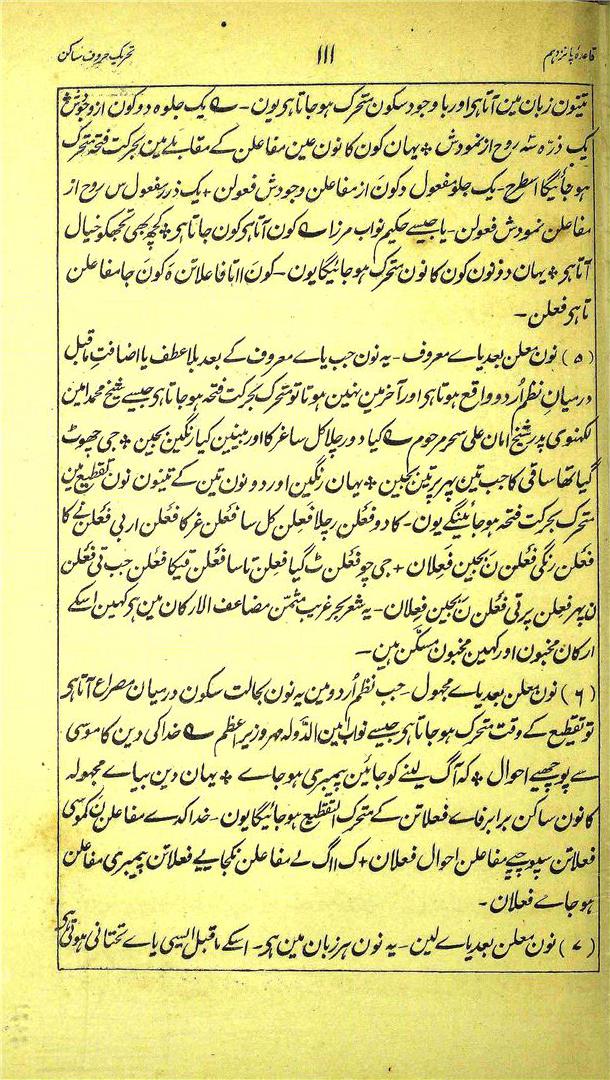 قاعدۂ پانزدہم
۱۱۱
تحریک حروف ساکن
تینون زبان مین آتا ہی اور باوجود سکون متحرک ہو جاتا ہی یون۔ ؎ یک جلوہ دو کون از وجودش ٭
یک ذرہ شہ روح از نمودش ٭ یہان کون کا نون عین مفاعلن کے مقابلے مین بحرکت فتحہ متحرک
ہو جائیگا اسطرح۔ یک جلو مفعول دکون از مفاعلن وجودش فعولن + یک ذرر مفعول س روح از
مفاعلن نمودش فعولن۔ یا جیسے حکیم نواب مرزا ؎ کون آتا ہی کون جاتا ہی ٭ کچھ بھی تجھکو خیال
آتا ہی ٭ یہان دونون کون کا نون متحرک ہو جائیگا یون۔ کونَ ااتا فاعلاتن ہ کونَ جا مفاعلن
تا ہی فعلن۔
(۵) نون معلن بعد یاے معروف۔ یہ نون جب یاے معروف کے بعد بلا عطف یا اضافتِ ماقبل
درمیان نظم اُردو واقع ہوتا ہی اور آخر مین نہین ہوتا تو متحرک بحرکت فتحہ ہو جاتا ہی جیسے شیخ محمد امین
لکھنوی پدر شیخ امان علی سحر مرحوم ؎ کیا دور چلا کل ساغر کا اور بینین کیا رنگین بجین ٭ جی چھوٹ
گیا تھا ساقی کا جب تین پہر پر تین بجین ٭ یہان رنگین اور دو نون تین کے تینون نون تقطیع مین
متحرک بحرکت فتحہ ہو جائینگے یون۔ کا دو فعلن رچلا فعِلن کل سا فعْلن غر کا فعْلن ار بی فعْلن نے کا
فعْلن رنگی فعْلن نَ بجین فعِلان + جی چو فعْلن ٹ گیا فعِلن تا سا فعْلن قیکا فعْلن جب تی فعْلن
ن پہر فعِلن پر تی فعْلن نَ بجین فعِلان۔ یہ شعر بحر غریب مثمّن مضاعف الارکان مین ہی کہین اسکے
ارکان مخبون اور کہین مخبون مسکّن ہین۔
(۶) نون معلن بعد یاے مجہول۔ جب نظم اُردو مین یہ نون بحالت سکون درمیان مصراع آتا ہی
تو تقطیع کے وقت متحرک ہو جاتا ہی جیسے نواب امین الدّولہ مہر وزیر اعظم ؎ خدا کی دین کا موسی
سے پوچھیے احوال ٭ کہ آگ لینے کو جائین پیمبری ہو جاے ٭ یہان دین بیاے مجہولہ
کا نون ساکن برابر فاے فعلاتن کے متحرک التقطیع ہو جائیگا یون۔ خدا کدے مفاعلن ن کموسی
فعلاتن سپوچیے مفاعلن احوال فعلان + ک ااگ لے مفاعلن نکجایے فعلاتن پیمبری مفاعلن
ہو جاے فعلان۔
(۷) نون معلن بعد یاے لین۔ یہ نون ہر زبان مین ہی۔ اسکے ماقبل ایسی یاے تحتانی ہوتی ہی